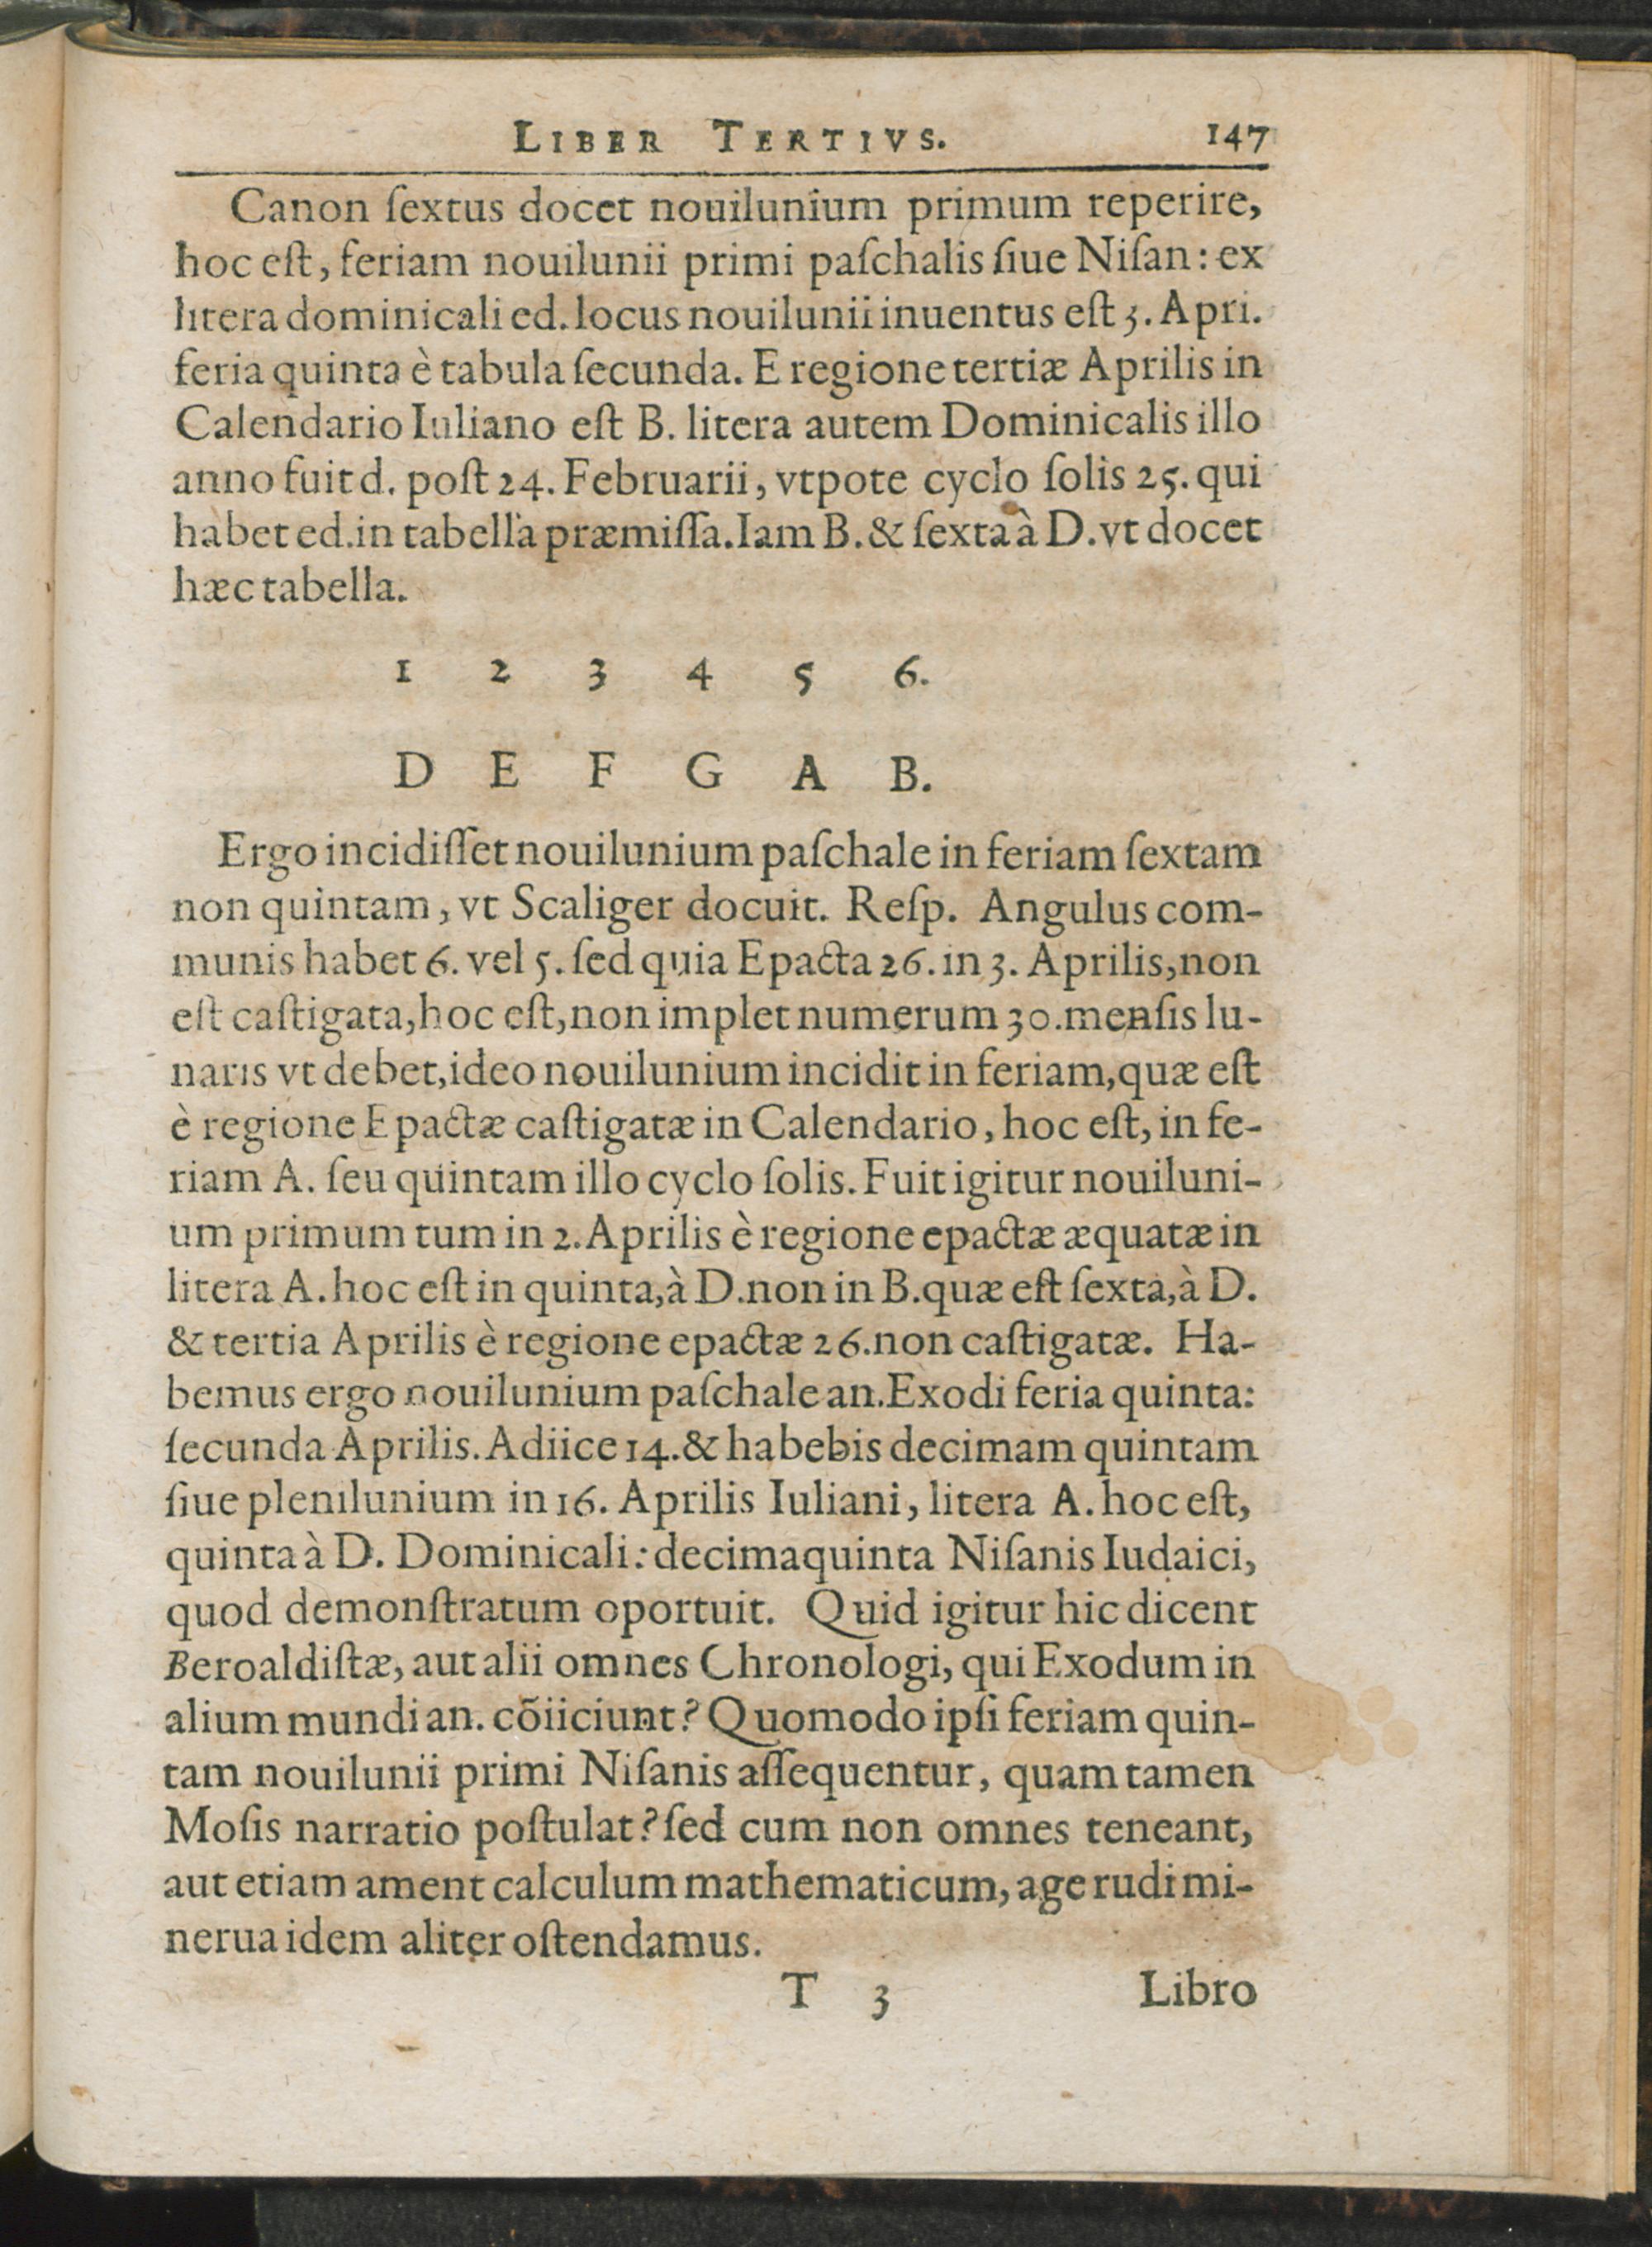 LIBER TERTIVS. 147
Canon ſextus docet nouilunium primum reperire,
hoc eſt, feriam nouilunii primi paſchalis ſiue Niſan: ex
litera dominicali ed. locus nouilunii inuentus eſt 3. Apri.
feria quinta è tabula ſecunda. E regione tertiæ Aprilis in
Calendario Iuliano eſt B. litera autem Dominicalis illo
anno fuit d. poſt 24. Februarii, vtpote cyclo ſolis 25. qui
habet ed. in tabella præmiſſa. Iam B. & ſexta à D. vt docet
hæc tabella.
1 2 3 4 5 6.
D E F G A B.
Ergo incidiſſet nouilunium paſchale in feriam ſextam
non quintam, vt Scaliger docuit. Reſp. Angulus com-
munis habet 6. vel 5. ſed quia Epacta 26. in 3. Aprilis, non
eſt caſtigata, hoc eſt, non implet numerum 30. menſis lu-
naris vt debet, ideo nouilunium incidit in feriam, quæ eſt
è regione Epactæ caſtigatæ in Calendario, hoc eſt, in fe-
riam A. ſeu quintam illo cyclo ſolis. Fuit igitur nouiluni-
um primum tum in 2. Aprilis è regione epactæ æquatæ in
litera A. hoc eſt in quinta, à D. non in B. quæ eſt ſexta, à D.
& tertia Aprilis è regione epactæ 26. non caſtigatæ. Ha-
bemus ergo nouilunium paſchale an. Exodi feria quinta:
ſecunda Aprilis. Adiice 14. & habebis decimam quintam
ſiue plenilunium in 16. Aprilis Iuliani, litera A. hoc eſt,
quinta à D. Dominicali: decimaquinta Niſanis Iudaici,
quod demonſtratum oportuit. Quid igitur hic dicent
Beroaldiſtæ, aut alii omnes Chronologi, qui Exodum in
alium mundi an. cõiiciunt? Quomodo ipſi feriam quin-
tam nouilunii primi Niſanis aſſequentur, quam tamen
Moſis narratio poſtulat? ſed cum non omnes teneant,
aut etiam ament calculum mathematicum, age rudi mi-
nerua idem aliter oſtendamus.
T 3 Libro